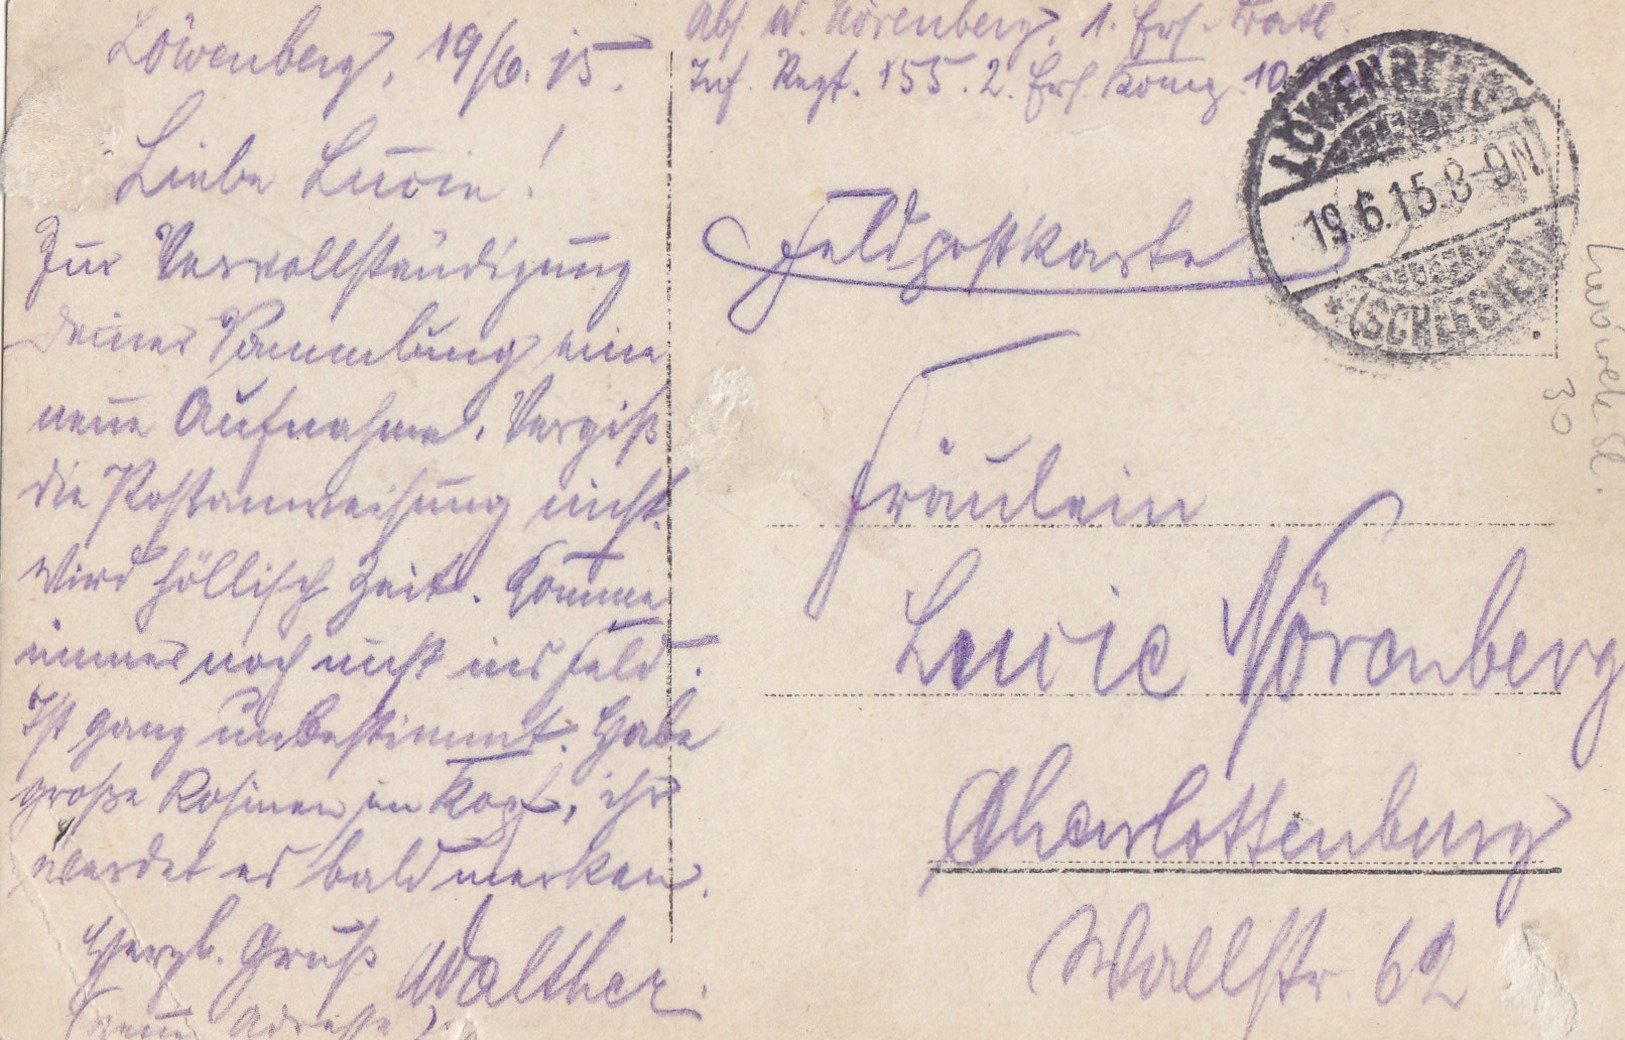 Löwenberg, 19/6. 15.
Liebe Luzie!
Zur Vervollständigung
deiner Sammlung eine
neue Aufnahme. Vergiß
die Postanweisung nicht.
Wird höllisch Zeit. Komme
immer noch nicht ins Feld.
Ist ganz unbestimmt. Habe
große Rosinen im Kopf, ihr
werdet es bald merken.
Herzl. Gruß Walther.
(neue Adresse).
Abs. W. Nörenberg, 1. Ers. Batl.
Inf. Regt. 155. 2. Ers. Komp. 10
LÖWENBERG
19.6.15.8-9N
*(SCHLESIEN)
Feldpostkarte
Fräulein
Luzie Nörenberg
Charlottenburg
Wallstr. 62
30